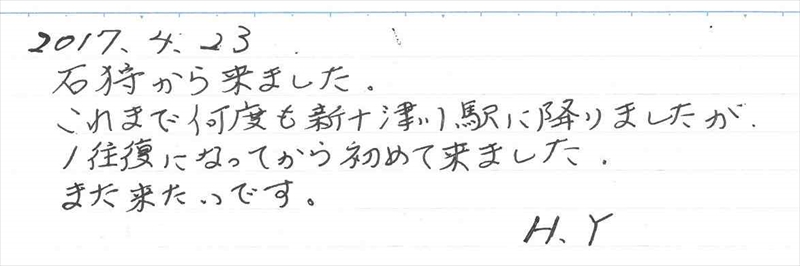 2017、4、23
石狩から来ました。
これまで何度も新十津川駅に降りましたが、
1往復になってから初めて来ました。
また来たいです。
H、Y